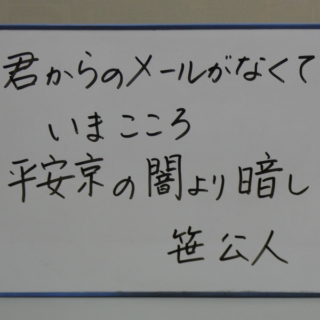 君からのメールがなくて
いまこころ
平安京の闇より暗し
笹公人